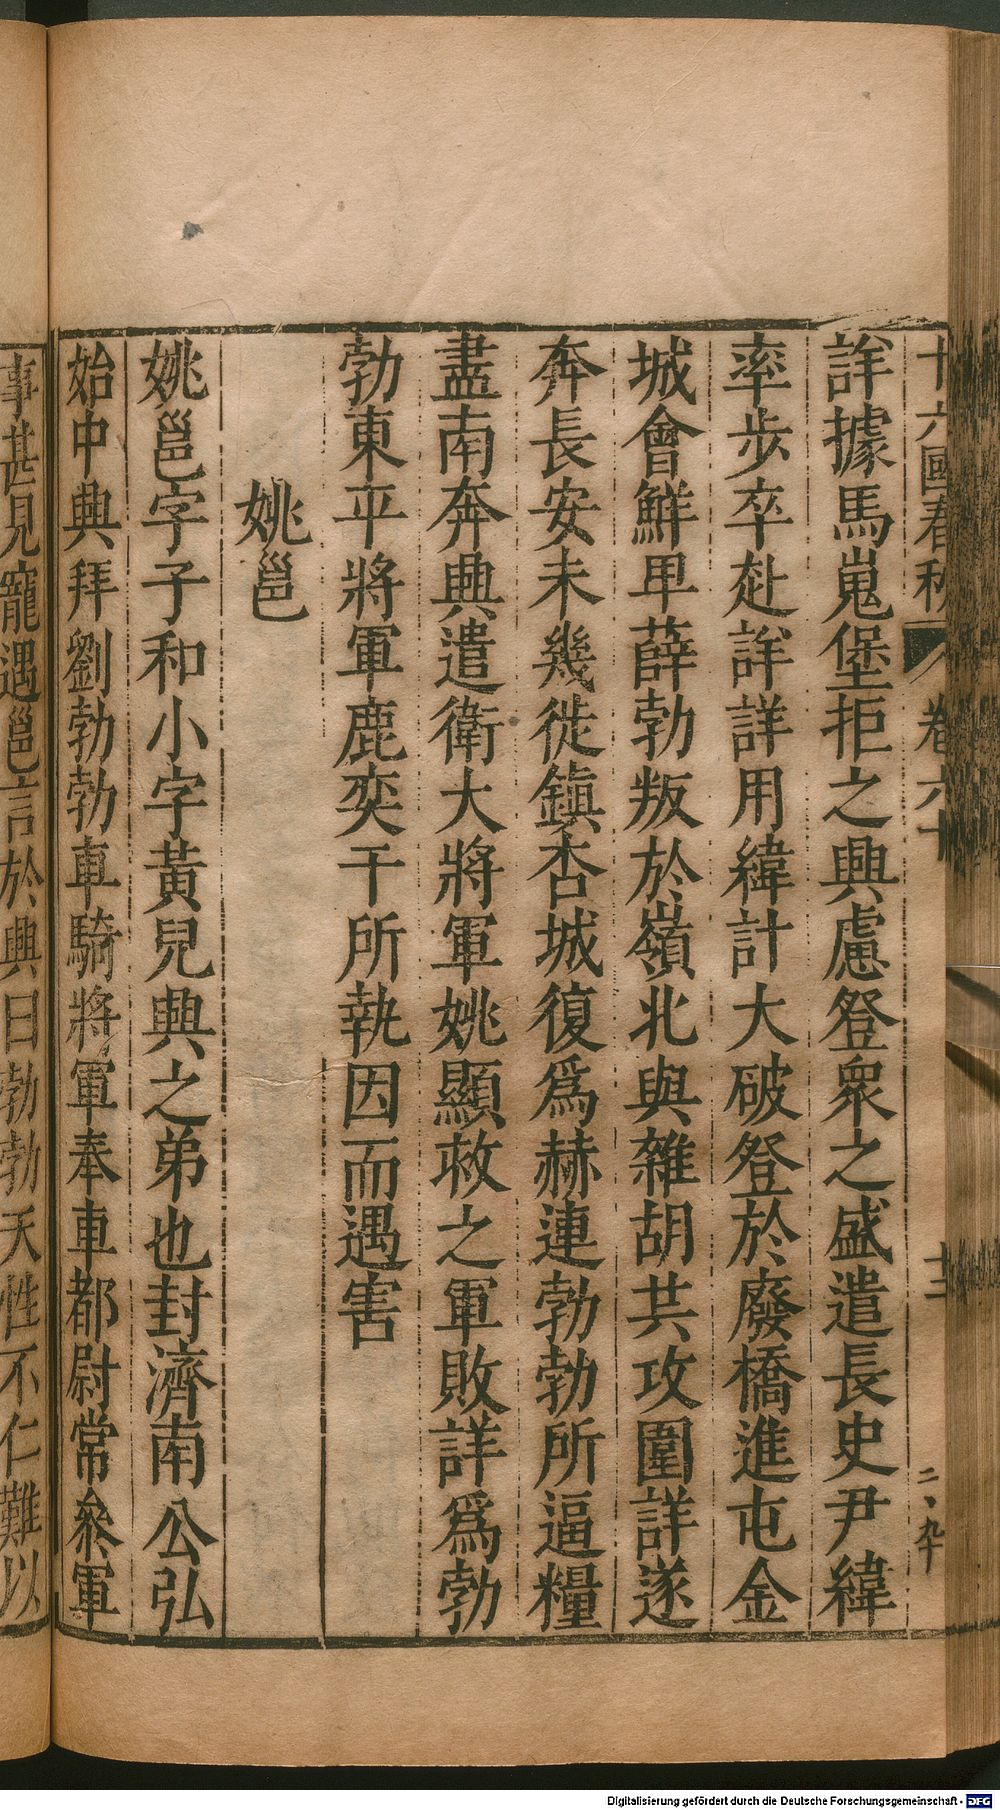 十六國春秋 卷六十 十二 二、卆
詳據馬嵬堡拒之興慮登衆之盛遣長史尹緯
率步卒赴詳詳用緯計大破登於廢橋進屯金
城會鮮卑薛勃叛於嶺北與雜胡共攻圍詳遂
奔長安未幾從鎮杏城復爲赫連勃勃所逼糧
盡南奔興遣衛大將軍姚顯救之軍敗詳爲勃
勃東平將軍鹿奕干所執因而遇害
姚邕
姚邕字子和小字黃兒興之弟也封濟南公弘
始中興拜劉勃勃車騎將軍奉車都尉常參軍
事甚見寵遇邕言於興曰勃勃天性不仁難以
Digitalisierung gefördert durch die Deutsche Forschungsgemeinschaft - DFG